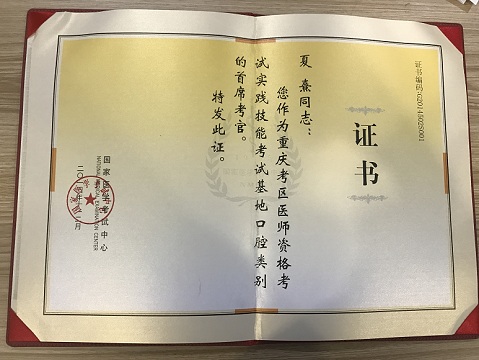 证书编码:G2014502S001
证书
夏熹同志:
您作为重庆考区医师资格考
试实践技能考试基地口腔类别
的首席考官。
特发此证。
国家医学考试中心
NATIONAL MEDICAL EXAMINATION CENTER
二〇一四年十二月